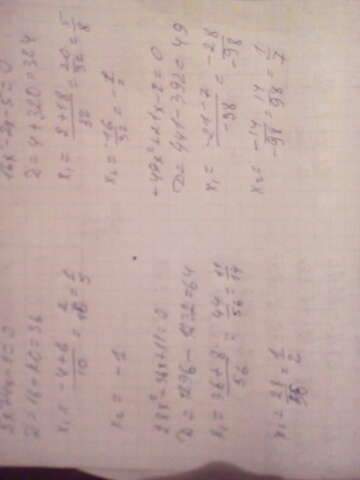 5x²+4x-1=0
D=16+20=36
x₁=(-4+6)/10=2/10=1/5
x₂=-1
28x²-36x+11=0
D=1296-1232=64
x₁=(36+8)/56=44/56=11/14
x₂=28/56=1/2
16x²-2x-5=0
D=4+320=324
x₁=(2+18)/32=20/32=5/8
x₂=-16/32=-1/2
-49x²+21x-2=0
D=441-392=49
x₁=(-21-7)/-98=-28/-98
x₂=-14/-98=14/98=1/7